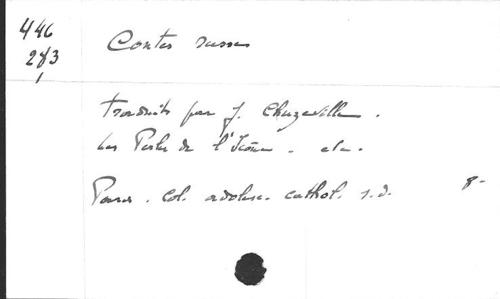 446
283
1
Contes russes
Traduits par J. Chuzeville.
Les Perles de l'Icône. etc.
Paris. Col. adolesc. cathol. s.d. 8-